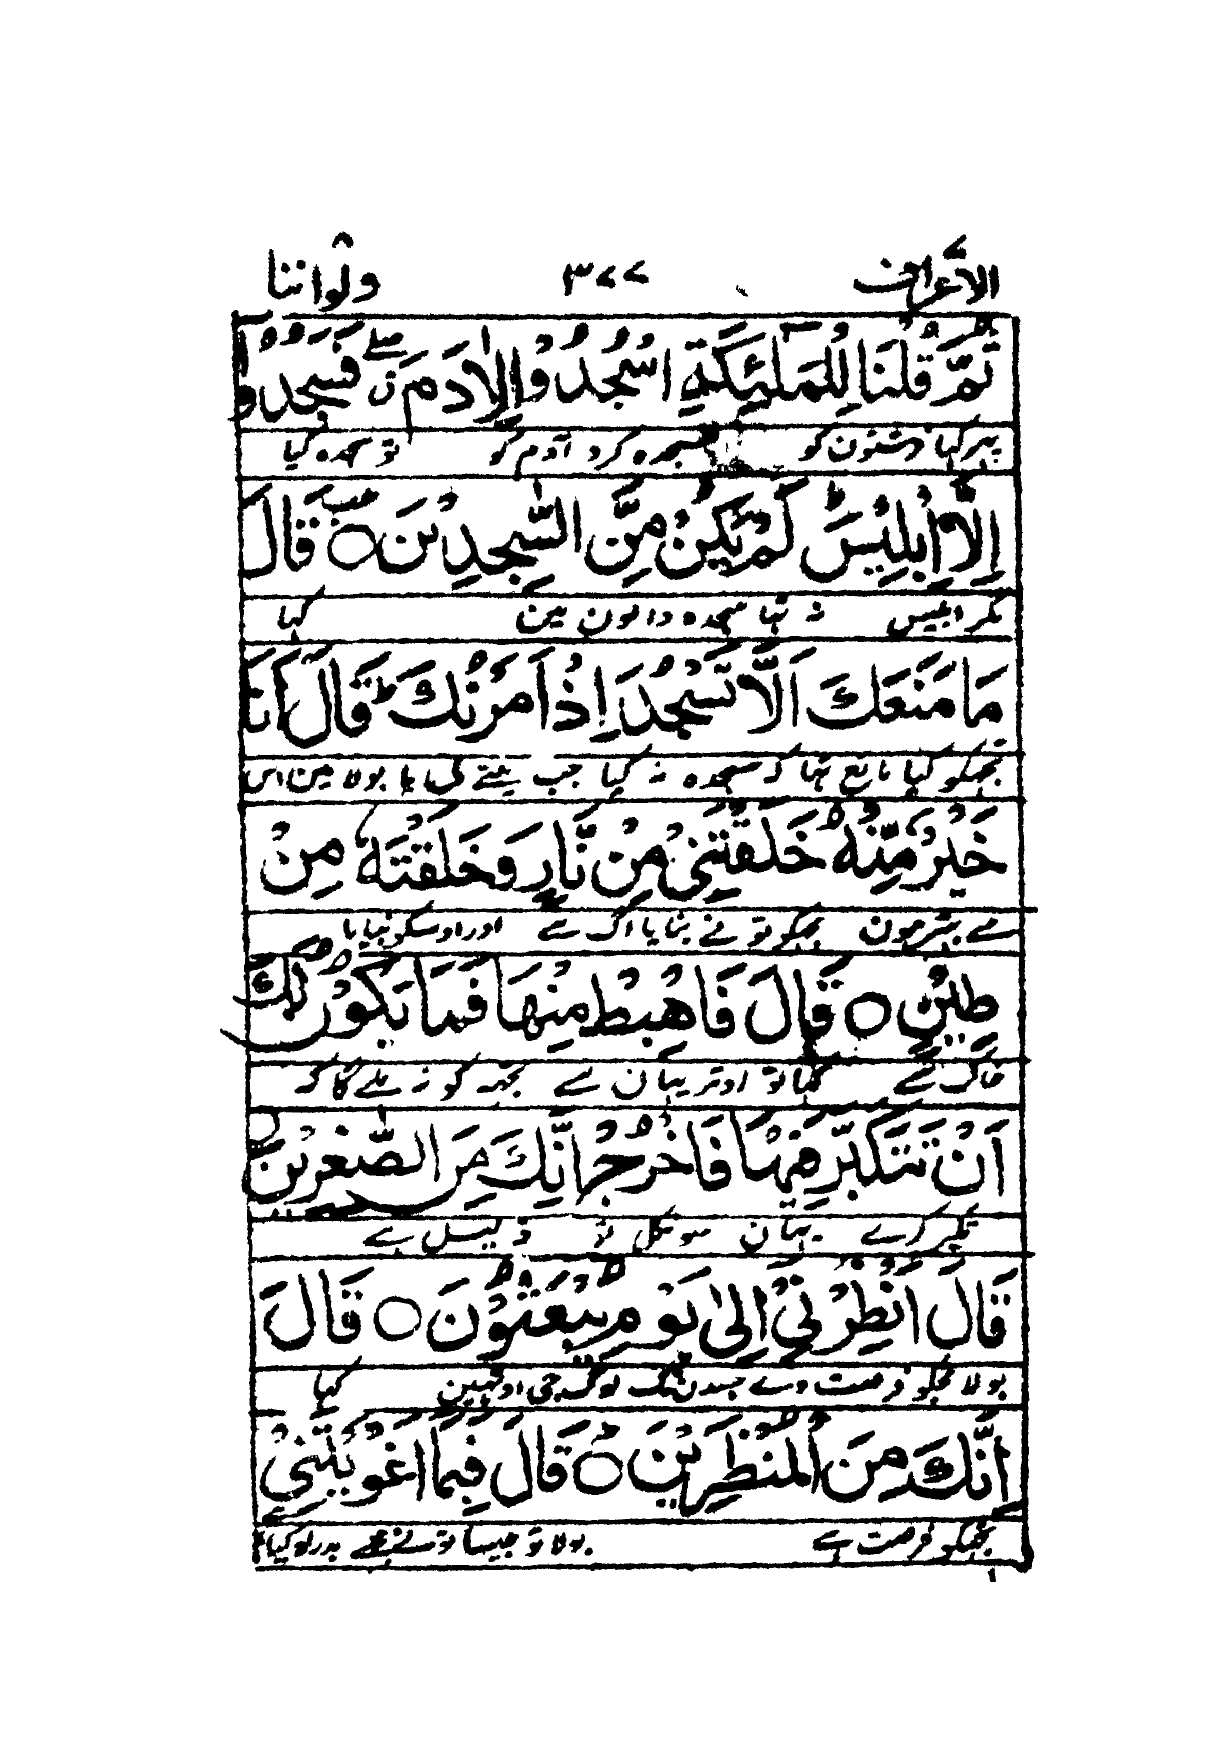 الاعراف ٧ ٣٧٧ ولواننا ٨
ثُمَّ قُلْنَا لِلْمَلٰٓئِكَةِ اسْجُدُوْا لِاٰدَمَ ۖق فَسَجَدُوْٓا
پہر کہا فرشتون کو سجدہ کرو آدم کو تو سجدہ کیا
اِلَّآ اِبْلِيْسَ ؕ لَمْ يَكُنْ مِّنَ السّٰجِدِيْنَ ○ قَالَ
مگر ابلیس نہ تہا سجدہ والون مین کہا
مَا مَنَعَكَ اَلَّا تَسْجُدَ اِذْ اَمَرْتُكَ ؕ قَالَ اَنَا
تجہکو کیا مانع تہا کہ سجدہ نہ کیا جب مینے فرمایا بولا مین اس
خَيْرٌ مِّنْهُ ۚ خَلَقْتَنِيْ مِنْ نَّارٍ وَّخَلَقْتَهٗ مِنْ
سے بہتر ہون مجہکو تو نے بنایا آگ سے اور اوسکو بنایا
طِيْنٍ ○ قَالَ فَاهْبِطْ مِنْهَا فَمَا يَكُوْنُ لَكَ
خاک سے کہا تو اوتر یہان سے تجہہ کو نہ ملے گا کہ
اَنْ تَتَكَبَّرَ فِيْهَا فَاخْرُجْ اِنَّكَ مِنَ الصّٰغِرِيْنَ ○
تکبر کرے یہان سو نکل تو ذلیل ہے
قَالَ اَنْظِرْنِيْٓ اِلٰى يَوْمِ يُبْعَثُوْنَ ○ قَالَ
بولا مجکو فرصت دے جسدن تک لوگ جی اوٹہین کہا
اِنَّكَ مِنَ الْمُنْظَرِيْنَ ○ قَالَ فَبِمَآ اَغْوَيْتَنِيْ
تجہکو فرصت ہے بولا تو جیسا تو نے مجہے بدراہ کیا